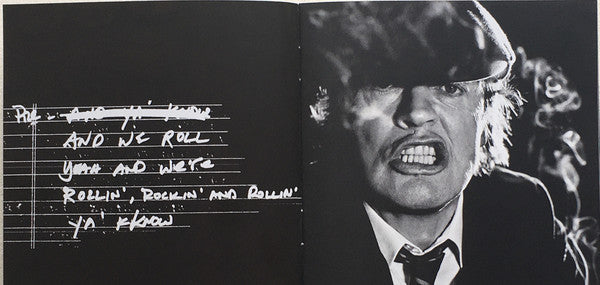 AND YA' KNOW
AND WE ROLL
YEAH AND WE'RE
ROLLIN', ROCKIN' AND ROLLIN'
YA' KKNOW